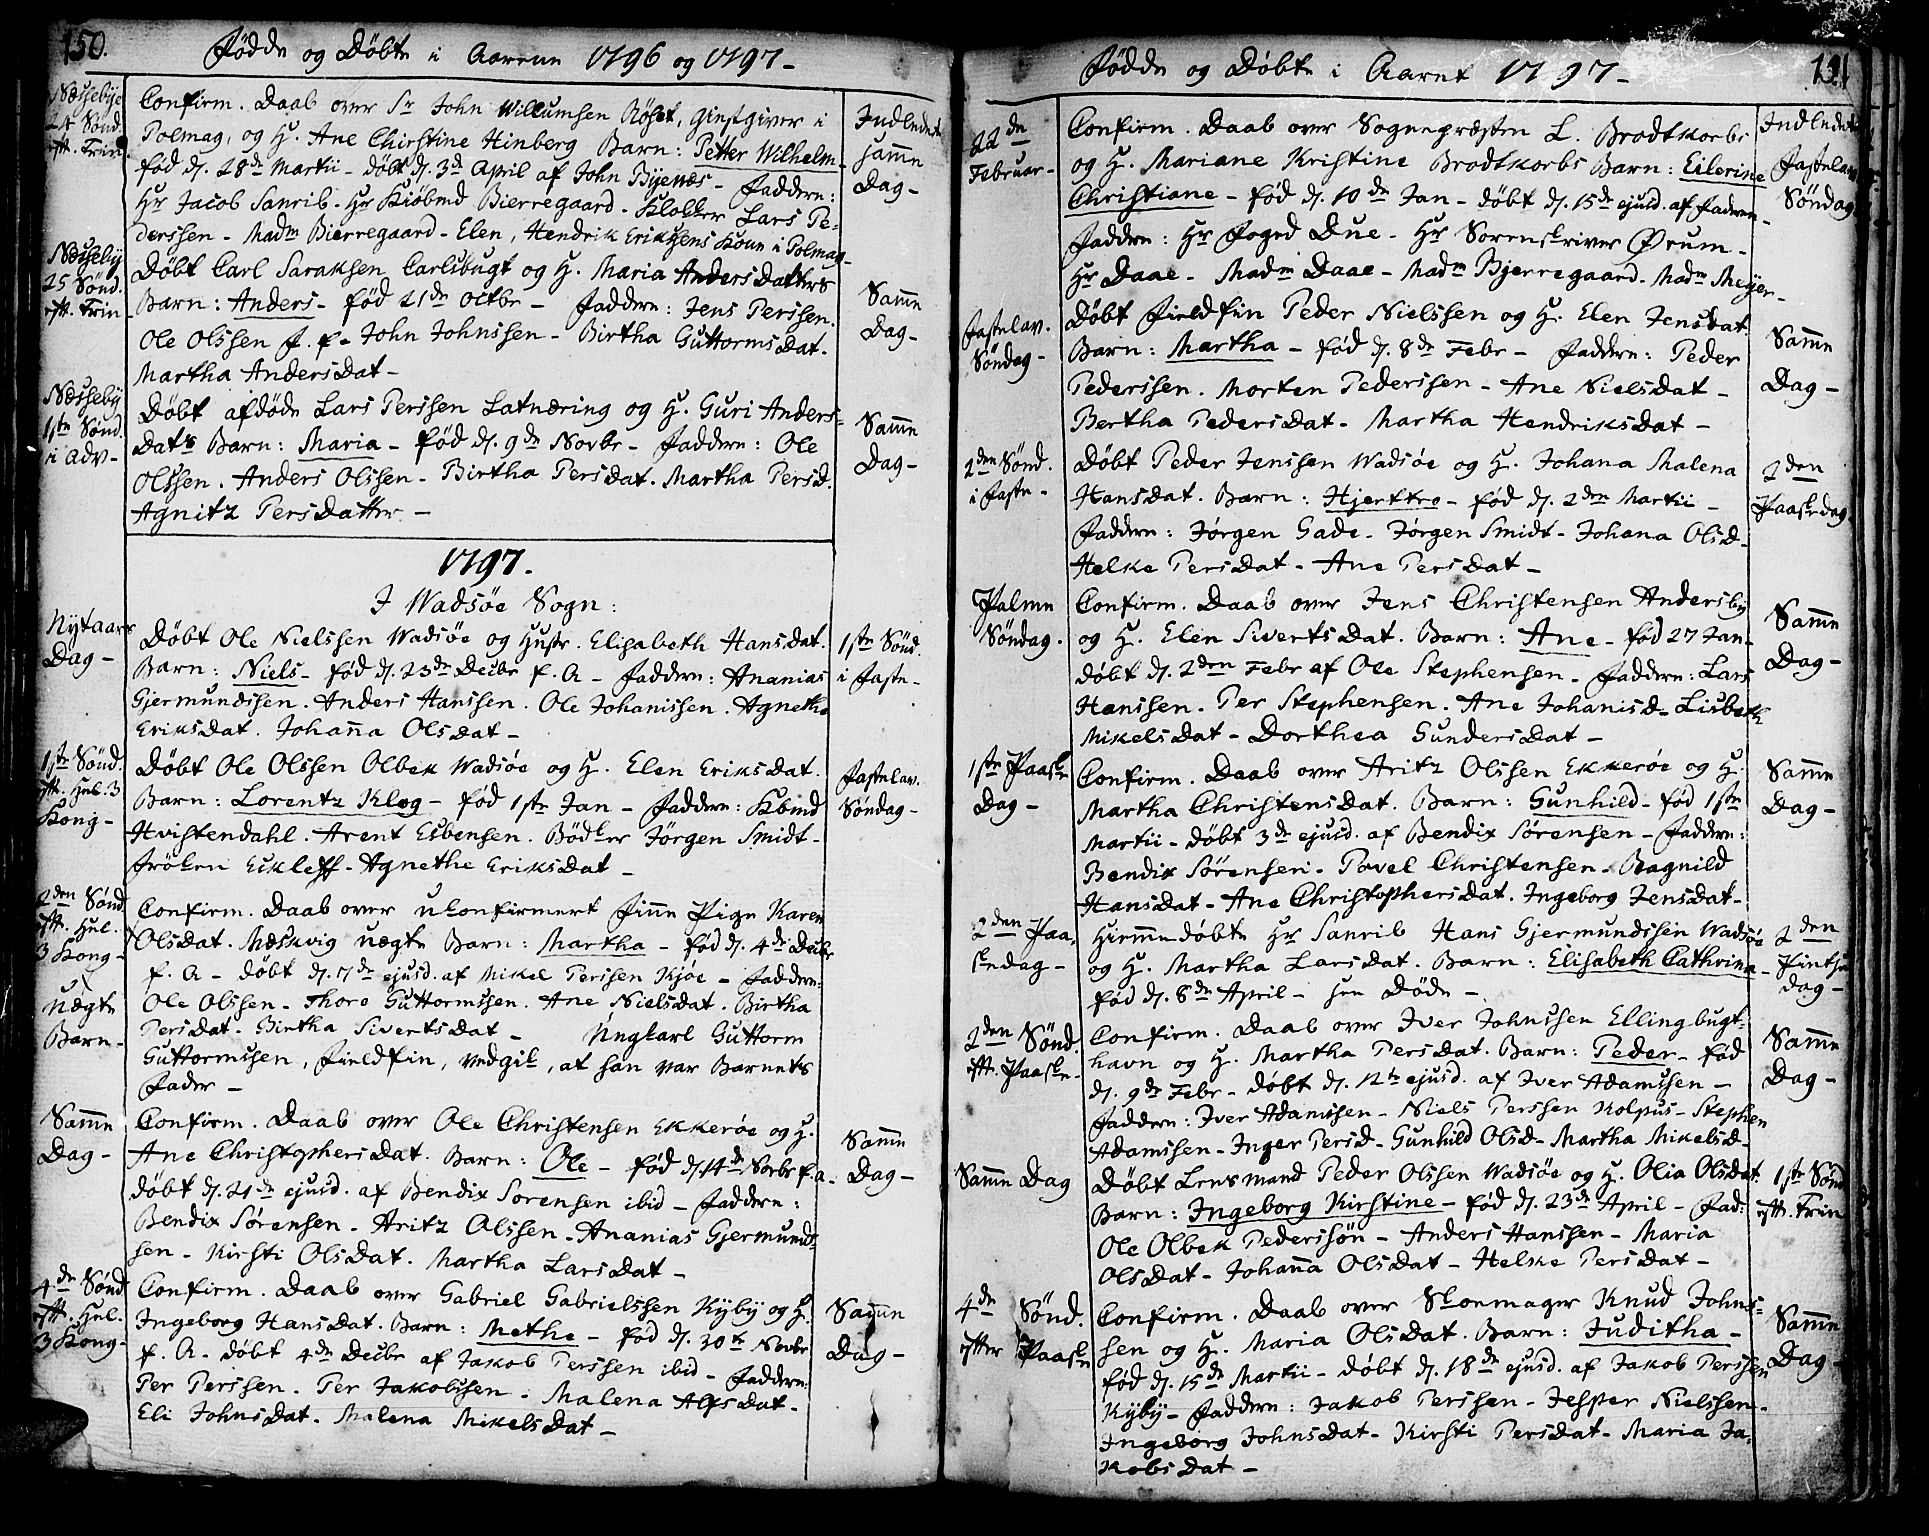 150.
Fødde og Døbte i Aarene 1796 og 1797 -
Næssebye
24 Sønd.
eft. Trin.
Confirm. Daab over Sr John Willumsen Røhst, giestgiver i
Polmag, og H. Ane Chirstine Hinberg Barn: Petter Wilhelm -
fød d. 28de Martii - døbt d. 3de April af John Byenæs - Faddere:
Hr Jacob Sanrib - Hr Kiøbmd Bierregaard - Klokker Lars Pe-
derssen - Madm Bierregaard - Elen, Hendrik Eriksens Kone i Polmag -
Indledet
samme
Dag -
Næsseby
25 Sønd.
eft. Trin -
Døbt Carl Saraksen Carlsbugt og H. Maria Anders Datters
Barn: Anders - fød 21de Octbr - Faddere: Jens Perssen.
Ole Olssen J. f. John Johnssen - Birtha Guttorms Dat.
Martha Anders Dat -
Samme
Dag -
Næsseby
1ste Sønd.
i Adv -
Døbt afdøde Lars Perssen Latnæring og H. Guri Anders-
Dats Barn: Maria - fød d. 9de Novbr - Faddere: Ole
Olssen. Anders Olssen - Birtha Pers Dat. Martha Persd.
Agnitz Pers Datter. -
Samme
Dag -
1797.
I Wadsøe Sogn:
Nytaars
Dag -
Døbt Ole Nielssen Wadsøe og Hustr. Elisabeth Hans Dat.
Barn: Niels - fød d. 23de Decbr f. A - Faddere: Ananias
Gjermundssen. Anders Hanssen. Ole Johanissen. Agnethe
Eriks Dat. Johanna Ols Dat -
1ste Sønd.
i Faste -
1ste Sønd.
eft. Hel. 3
Kong -
Døbt Ole Olssen Olbek Wadsøe og H. Elen Eriks Dat.
Barn: Lorentz Klog - fød 1ste Jan - Faddere: Kbmd
Hvistendahl. Arent Esbensen. Bødker Jørgen Smidt -
Frøken Eikleff - Agnethe Eriks Dat -
Fastelav.
Søndag -
2den Sønd.
eft. Hel.
3 Kong -
Uægte
Barn -
Confirm. Daab over uconfirmert Finne Pige Karen
Ols Dat. Mæskvig uægte Barn: Martha - fød d. 4de Decbr
f. A - døbt d. 17de ejusd. af Mikel Perssen Kjøe - Faddere:
Ole Olssen - Thoro Guttormssen. Ane Niels Dat. Birtha
Pers Dat. Birtha Siverts Dat - Ungkarl Guttorm
Guttormssen, Fieldfin, vedgik, at han var Barnets
Fader -
Samme
Dag -
Confirm. Daab over Ole Christensen Ekkerøe og H.
Ane Christophers Dat. Barn: Ole - fød d. 14de Novbr f. a.
døbt d. 21de ejusd. af Bendix Sørensen ibid - Faddere:
Bendix Sørensen - Aritz Olssen - Ananias Gjermunds-
sen - Kirsti Ols Dat. Martha Lars Dat -
Samme
Dag -
4de Sønd
eft. Hel.
3 Kong -
Confirm. Daab over Gabriel Gabrielssen Kyby og H.
Ingeborg Hans Dat. Barn: Methe - fød d. 30te Novbr
f. A - døbt 4de Decbr af Jakob Perssen ibid - Faddere:
Per Perssen. Per Jakobssen - Malena Alfs Dat -
Eli Johns Dat. Malena Mikels Dat -
Samme
Dag -
Fødde og Døbte i Aaret 1797 -
151
22de
Februar -
Confirm. Daab over Sognepræsten L. Brodtkorbs
og H. Mariane Kristine Brodtkorbs Barn: Eilerine
Christiane - fød d. 10de Jan - døbt d. 15de ejusd. af Faderen -
Faddere: Hr Foged Due - Hr Sorenskriver Ørum -
Hr Daae - Madm Daae - Madm Bjerregaard - Madm Meyer -
Indledet
Fastelav
Søndag
Fastelav.
Søndag -
Døbt Fieldfin Peder Nielssen og H. Elen Jens Dat.
Barn: Martha - fød d. 8de Febr - Faddere: Peder
Pederssen. Morten Pederssen - Ane Niels Dat -
Bertha Peders Dat - Martha Hendriks Dat -
Samme
Dag -
2den Sønd.
i Faste -
Døbt Peder Jenssen Wadsøe og H. Johana Malena
Hans Dat. Barn: Hjerttro - fød d. 2den Martii -
Faddere: Jørgen Gade - Jørgen Smidt - Johana Olsd -
Helke Pers Dat - Ane Pers Dat -
2den
Paaskedag -
Palme
Søndag.
Confirm. Daab over Jens Christensen Andersby
og H. Elen Siverts Dat. Barn: Ane - fød 27 Jan -
døbt d. 2den Febr af Ole Stephensen - Faddere: Lars
Hanssen - Per Stephensen. Ane Johanisd - Lisbeth
Mikels Dat - Dorthea Gunders Dat -
Samme
Dag -
1ste Paaske
Dag -
Confirm. Daab over Aritz Olssen Ekkerøe og H.
Martha Christens Dat. Barn: Gunhild - fød 1ste
Martii - døbt 3de ejusd. af Bendix Sørensen - Faddere:
Bendix Sørensen - Povel Christensen - Ragnild
Hans Dat - Ane Christophers Dat. Ingeborg Jens Dat -
Samme
Dag -
2den Paa-
skedag -
Hiemmedøbte Hr Sanrib Hans Gjermundssen Wadsøe
og H. Martha Lars Dat. Barn: Elisabeth Cathrina -
fød d. 8de April - hen Døde -
2den
Pintse
dag -
2den Sønd.
eft. Paaske -
Confirm. Daab over Iver Johnssen Ellingbugt-
havn og H. Martha Pers Dat. Barn: Peder - fød
d. 9de Febr - døbt d. 12te ejusd. af Iver Adamssen -
Faddere: Iver Adamssen - Niels Perssen Kolpus - Stephen
Adamssen - Inger Persd - Gunhild Olsd - Martha Mikelsd -
Samme
Dag -
Samme Dag
Døbt Lensmand Peder Olssen Wadsøe og H. Olia Ols Dat.
Barn: Ingeborg Kirstine - fød d. 23de April - Fad:
Ole Olbek Pederssøn - Anders Hanssen - Maria
Ols Dat - Johanna Ols Dat - Helke Pers Dat -
1ste Sønd
eft. Trin
4de Sønd.
efter Paaske
Confirm. Daab over Skoemager Knud Johns-
sen og H. Maria Ols Dat. Barn: Juditha -
fød d. 15de Martii - døbt d. 18de ejusd. af Jakob Perssen
Kyby - Faddere: Jakob Perssen - Jesper Nielssen -
Ingeborg Johns Dat - Kirsti Pers Dat - Maria Ja-
kobs Dat -
Samme
Dag -